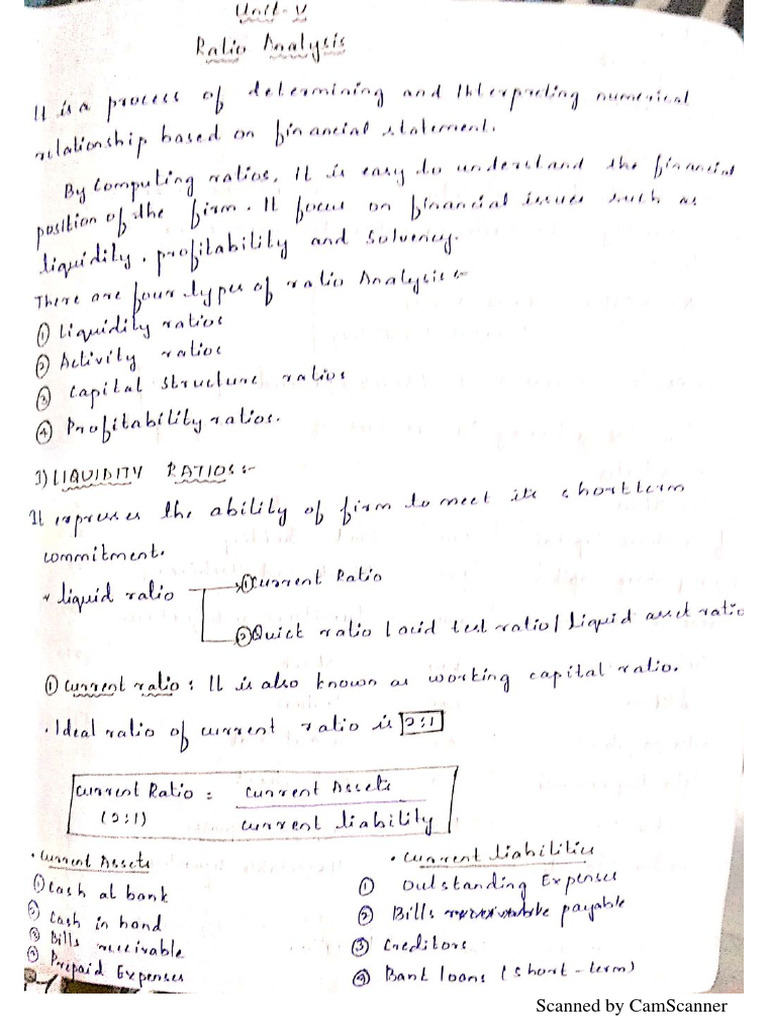 Unit-V
Ratio Analysis
It is a process of determining and Interpreting numerical
relationship based on financial statement.
By computing ratios, It is easy to understand the financial
position of the firm. It focus on financial issues such as
liquidity, profitability and solvency.
There are four types of ratio Analysis:-
① Liquidity ratios
② Activity ratios
③ Capital structure ratios
④ Profitability ratios.
1) LIQUIDITY RATIOS:-
It expresses the ability of firm to meet its short term
commitment.
* liquid ratio → ① Current Ratio
② Quick ratio / acid test ratio / liquid asset ratio
① Current ratio: It is also known as working capital ratio.
• Ideal ratio of current ratio is 2:1
Current Ratio : Current Assets
(2:1) current liability
• Current Assets
① Cash at bank
② Cash in hand
③ Bills receivable
④ Prepaid Expenses
• Current liabilities
① Outstanding Expenses
② Bills payable
③ Creditors
④ Bank loans (short-term)
Scanned by CamScanner